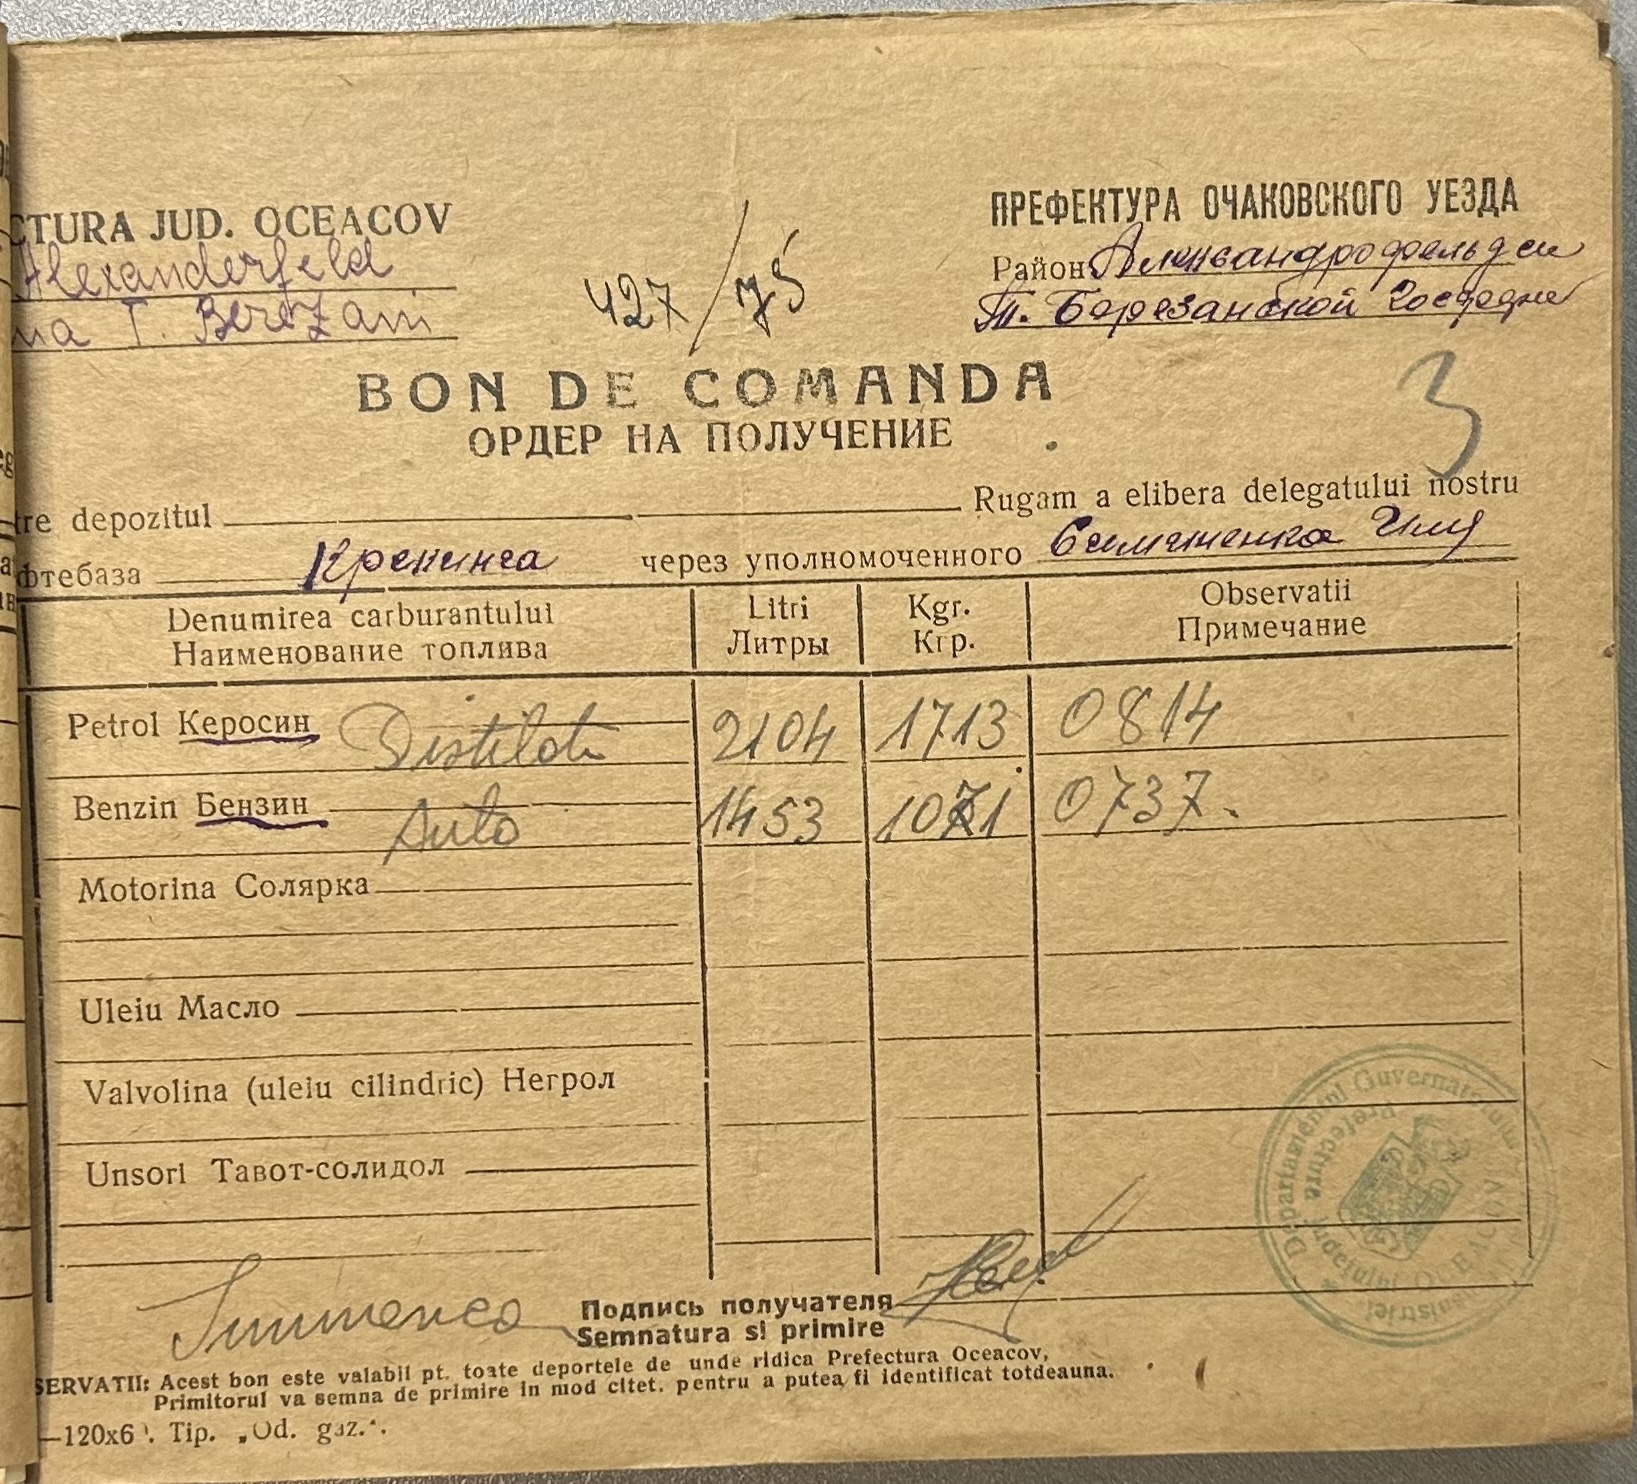 CTURA JUD. OCEACOV
Alexanderfeld
T. Berezani
427/75
ПРЕФЕКТУРА ОЧАКОВСКОГО УЕЗДА
Район Александрофельдси
Т. Березанской
BON DE COMANDA
ОРДЕР НА ПОЛУЧЕНИЕ
3
tre depozitul Rugam a elibera delegatului nostru
фтебаза Крекинга через уполномоченного
Denumirea carburantului Litri Kgr. Observatii
Наименование топлива Литры Кгр. Примечание
Petrol Керосин 2104 1713 0814
Benzin Бензин Auto 1453 1071 0737.
Motorina Солярка
Uleiu Масло
Valvolina (uleiu cilindric) Негрол
Unsori Тавот-солидол
Departamentul Guvernatorului
Prefectura Judeţului
Подпись получателя
Semnatura si primire
SERVATII: Acest bon este valabil pt. toate deportele de unde ridica Prefectura Oceacov,
Primitorul va semna de primire in mod citet, pentru a putea fi identificat totdeauna.
—120x6 Tip. „Od. gaz.".